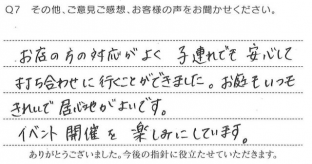 Q7 その他、ご意見ご感想、お客様の声をお聞かせください。
お店の方の対応がよく 子連れでも 安心して
打ち合わせに行くことができました。お庭もいつも
きれいで居心地がよいです。
イベント開催を楽しみにしています。
ありがとうございました。今後の指針に役立たせていただきます。